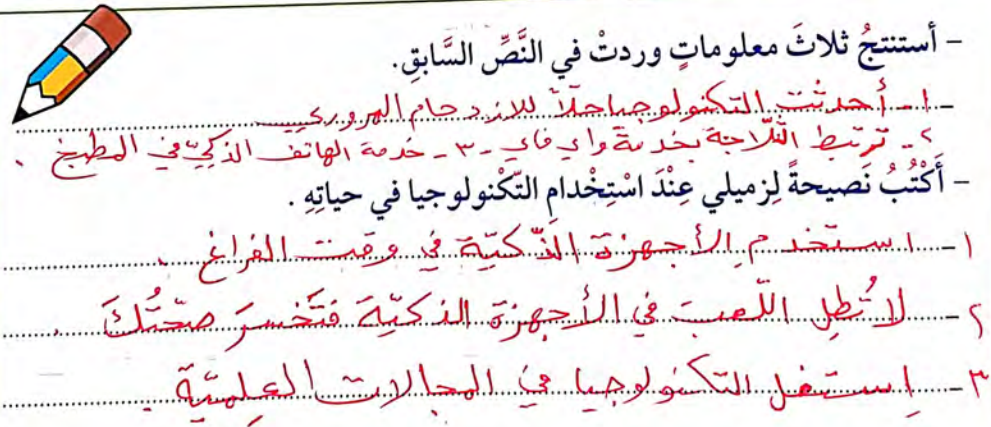 - أستنتجُ ثلاثَ معلوماتٍ وردتْ في النَّصِّ السَّابقِ.
١- أحدثت التكنولوجيا حلاً للازدحام المروري
٢- ترتبط الثلّاجة بخدمة واي فاي - ٣ - خدمة الهاتف الذكيّ في المطبخ .
- أَكْتُبُ نَصيحةً لِزميلي عِنْدَ اسْتِخْدامِ التّكْنولوجيا في حياتِهِ .
١- استخدم الأجهزة الذّكيّة في وقت الفراغ .
٢- لا تُطِل اللّعبَ في الأجهزة الذكيّة فتَخسرَ صحّتُكَ .
٣- اِستغل التكنولوجيا في المجالات العِلميّة .